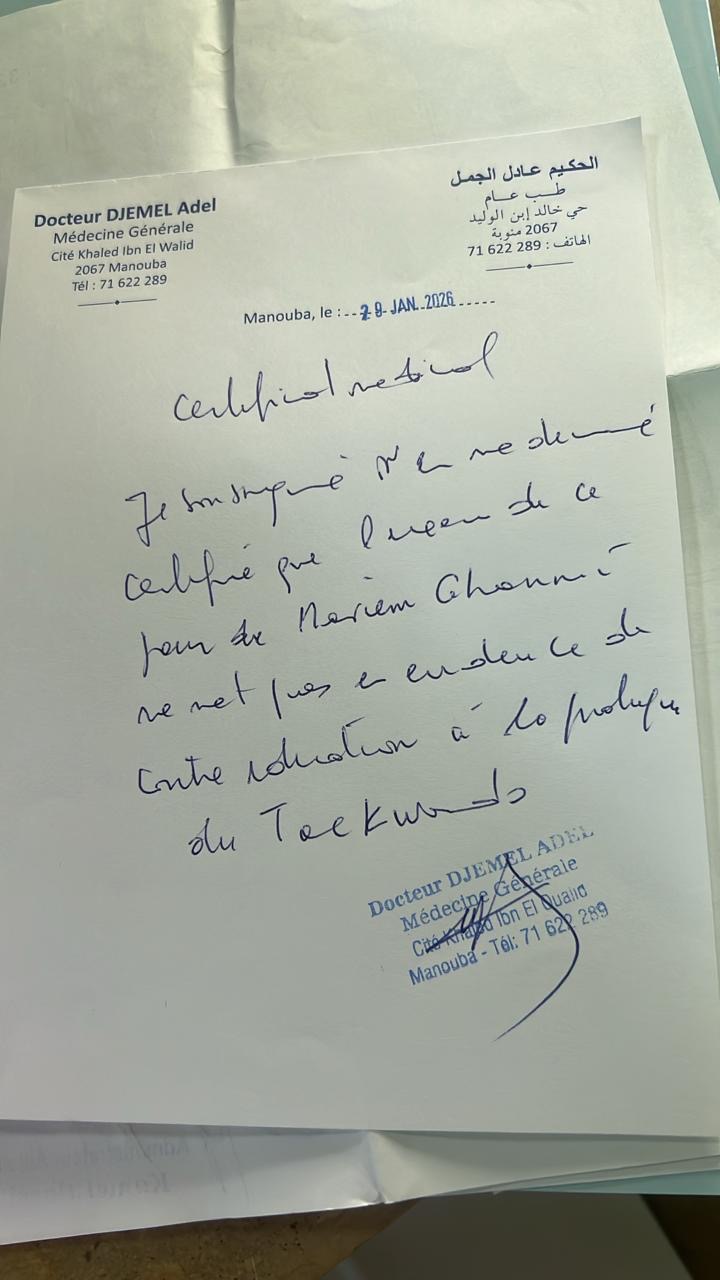 Docteur DJEMEL Adel
Médecine Générale
Cité Khaled Ibn El Walid
2067 Manouba
Tél : 71 622 289
الحكيم عادل الجمل
طب عام
حي خالد إبن الوليد
2067 منوبة
الهاتف : 289 622 71
Manouba, le : 29 JAN. 2026
Certificat medical
Je soussigné Dr en medecine
certifié que l'examen de ce
jour de Mariem Ghanmi
ne met pas en evidence de
contre indication à la pratique
du Taekwondo
Docteur DJEMEL ADEL
Médecine Générale
Cité Khaled Ibn El Oualid
Manouba - Tél: 71 622 289